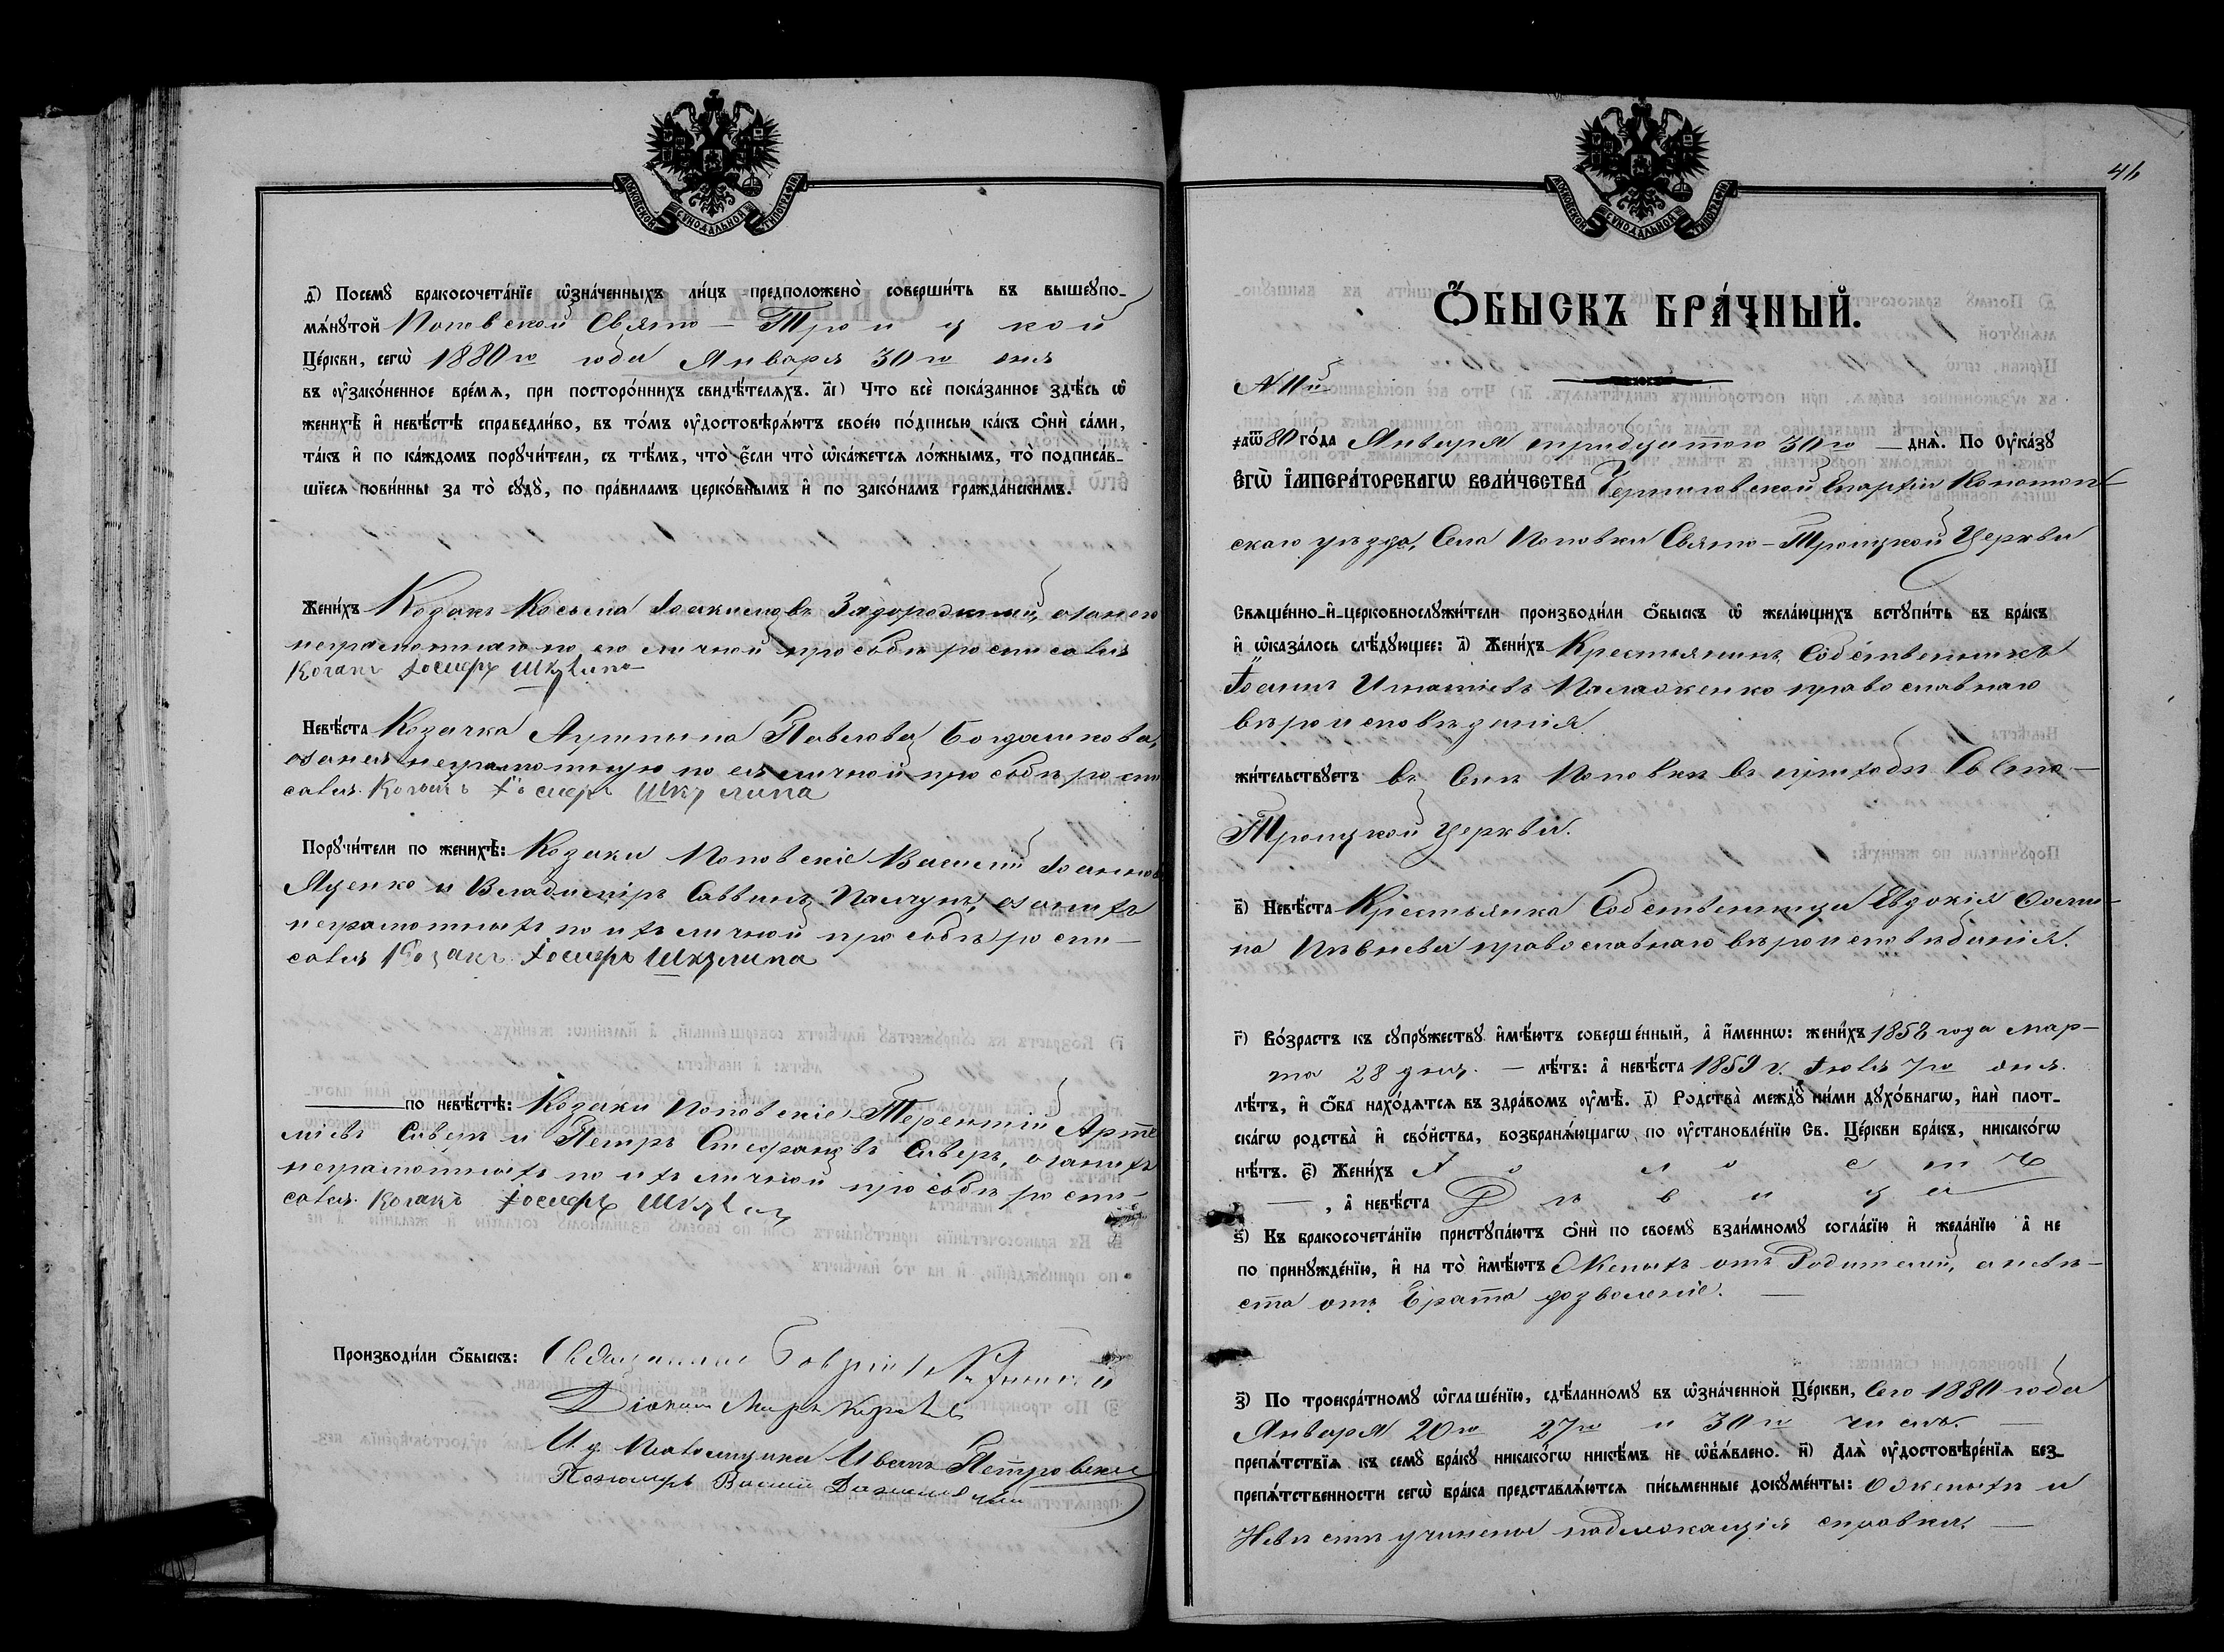 МОСКОВСКОЙ СѴНОДАЛЬНОЙ ТИПОГРАФІИ
д҃) Посемꙋ бракосочета́нїе ѡ҆зна́ченныхъ ли́цъ предположено̀ соверши́ть въ вышеꙋпо-
мѧ́нꙋтой Поповской Свято-Троицкой
Це́ркви, сегѡ̀ 1880го года Января 30го дня
въ ᲂу҆зако́ненное вре́мѧ, при посторо́ннихъ свидѣ́телѧхъ. а҃і) Что всѐ пока́занное здѣ́сь ѡ҆
женихѣ̀ и҆ невѣ́стѣ справедли́во, въ то́мъ ᲂу҆достовѣрѧ́ютъ свое́ю по́дписью ка́къ ѻ҆нѝ са́ми,
та́къ и҆ по ка́ждомъ порꙋчи́тели, съ тѣ́мъ, что̀ є҆́сли что̀ ѡ҆ка́жетсѧ ло́жнымъ, то̀ подписа́в-
шїесѧ пови́нны за то̀ сꙋдꙋ̀, по пра́виламъ церко́внымъ и҆ по зако́намъ гражда́нскимъ.
Жени́хъ Козакъ Косьма Іоакимовъ Загородний, а за него
неграмотнаго по его личной просьбѣ росписался
Козакъ Іосифъ Шкулипа
Невѣ́ста Козачка Агрипина Павлова Богданкова,
а за нея неграмотную по ея личной просьбѣ роспи
сался Козакъ Іосифъ Шкулипа
Порꙋчи́тели по женихѣ̀: Козаки Поповскіе Василій Іоаннов
Яценко и Владиміръ Саввинъ, а за нихъ
неграмотныхъ по ихъ личной просьбѣ роспи-
сался Козакъ Іосифъ Шкулипа
по невѣ́стѣ: Козаки Поповскіе Терентій Арте
міевъ и Петръ Стефановъ Сиверъ, а за нихъ
неграмотныхъ по ихъ личной просьбѣ роспи-
сался Козакъ Іосифъ
Производи́ли ѻ҆́быскъ: Священникъ Гавріилъ
Діаконъ Маръ
И. д. Псаломщика Иванъ Петровскій
Пономарь Василій
МОСКОВСКОЙ СѴНОДАЛЬНОЙ ТИПОГРАФІИ
46
Ѻ҆́БЫСКЪ БРА́ЧНЫЙ.
№ 11й
҂аѿ80 го́да Января тридцатаго 30го — днѧ̀. По Оу҆ка́зꙋ
Є҆гѡ̀ І҆мпера́торскагѡ Вели́чества Черниговской Епархіи Конотоп-
скаго уѣзда, Села Поповки Свято-Троицкой Церкви
Свѧще́нно-и҆-церковнослꙋжи́тели производи́ли ѻ҆́быскъ ѡ҆ жела́ющихъ встꙋпи́ть въ бра́къ
и҆ ѡ҆каза́лось слѣ́дꙋющее: а҃) Жени́хъ Крестьянинъ Собственникъ
Іоаннъ Игнатіевъ Палаженко православнаго
вѣроисповѣданія.
жи́тельствꙋетъ въ Селѣ Поповкѣ въ приходѣ Свято-
Троицкой Церкви.
в҃) Невѣ́ста Крестьянка Собственница Евдокія Фоми-
на Пѣвнева православнаго вѣроисповѣданія.
г҃) Во́зрастъ къ сꙋпрꙋ́жествꙋ и҆мѣ́ютъ соверше́нный, а҆ и҆́меннѡ: жени́хъ 1858 года мар-
та 28 дня. — лѣ́тъ: а҆ невѣ́ста 1859 г. Іюля 7го дня.
лѣ́тъ, и҆ ѻ҆́ба нахо́дѧтсѧ въ здра́вомъ ᲂу҆мѣ̀. д҃) Родства̀ междꙋ̀ ни́ми дꙋхо́внагѡ, и҆лѝ плот-
ска́гѡ родства̀ и҆ сво́йства, возбранѧ́ющагѡ, по ᲂу҆становле́нїю Св. Це́ркви бра́къ, никако́гѡ
нѣ́тъ. є҃) Жени́хъ Холостъ
—, а҆ невѣ́ста Дѣвица
ѕ҃) Къ бракосочета́нїю пристꙋпа́ютъ ѻ҆нѝ по своемꙋ̀ взаи́мномꙋ согла́сїю и҆ жела́нїю а҆ не
по принꙋжде́нїю, и҆ на то̀ и҆мѣ́ютъ Женихъ отъ Родителей, а невѣ-
ста отъ Брата дозволеніе. —
з҃) По троекра́тномꙋ ѡ҆глаше́нїю, сдѣ́ланномꙋ въ ѡ҆зна́ченной Це́ркви, Сего 1880 года
Января 20го 27го и 30го числъ. —
препѧ́тствїѧ къ семꙋ̀ бра́кꙋ никако́гѡ никѣ́мъ не ѡ҆бѧ́влено. и҃) Длѧ̀ ᲂу҆достовѣре́нїѧ без-
препѧ́тственности сегѡ̀ бра́ка представлѧ́ютсѧ пи́сьменные докꙋме́нты: О Женихѣ и
Невѣстѣ учинены надлежащія справки. —